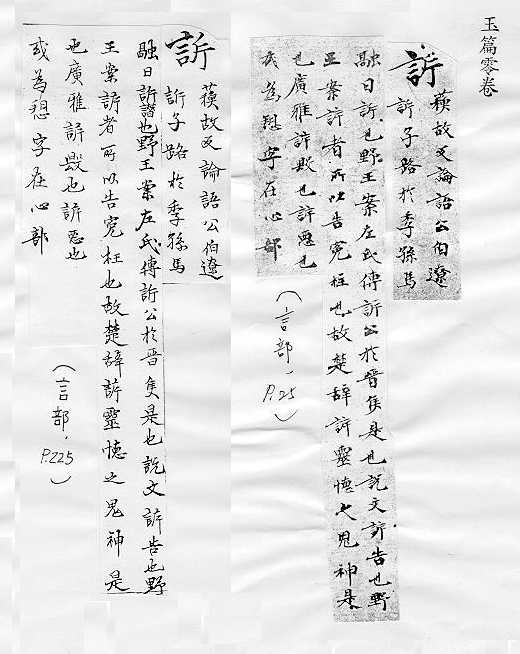 玉篇零卷
訴
蘓故反論語公伯遼
訴子路於季孫馬
融曰訴也野王案左氏傳訴公於晉侯是也説文訴告也野
王案訴者所以告寃枉也故楚辞訴靈懐之鬼神是
也廣雅訴欺也訴惡也
或為愬字在心部
(言部, P.25)
訴
蘓故反論語公伯遼
訴子路於季孫馬
融曰訴譖也野王案左氏傳訴公於晉隻是也説文訴告也野
王案訴者所以告寃枉也故楚辞訴靈懐之鬼神是
也廣雅訴毀也訴惡也
或為愬字在心部
(言部, P.225)